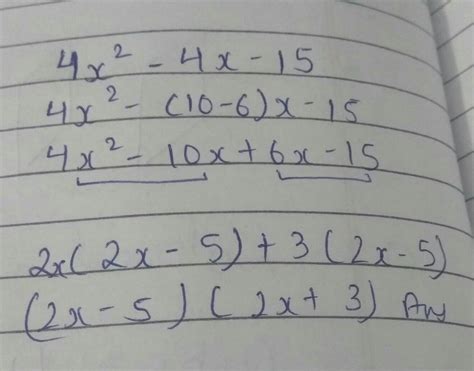 4x² - 4x - 15
4x² - (10-6)x - 15
4x² - 10x + 6x - 15
2x(2x - 5) + 3(2x - 5)
(2x - 5) (2x + 3) Ans